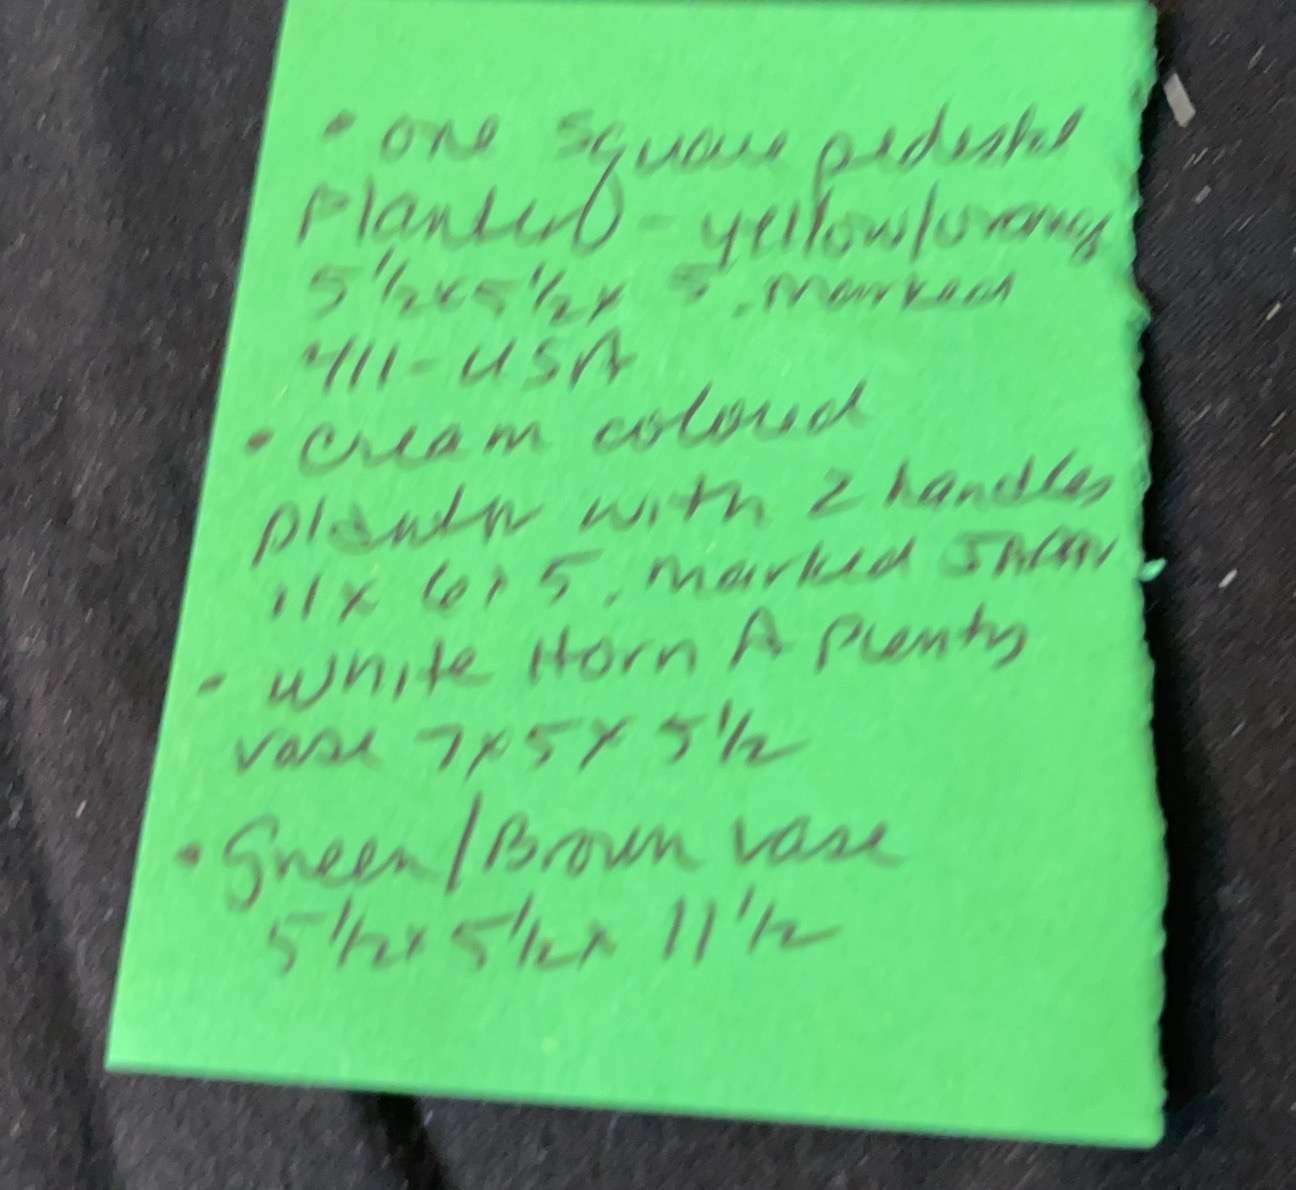 • one square pedestal
planter - yellow/orang
5 1/2 x 5 1/2 x 5. marked
411 - USA
• cream colored
planter with 2 handles
11 x 6 x 5. marked
- white Horn A Plenty
vase 7 x 5 x 5 1/2
• Green/Brown vase
5 1/2 x 5 1/2 x 11 1/2